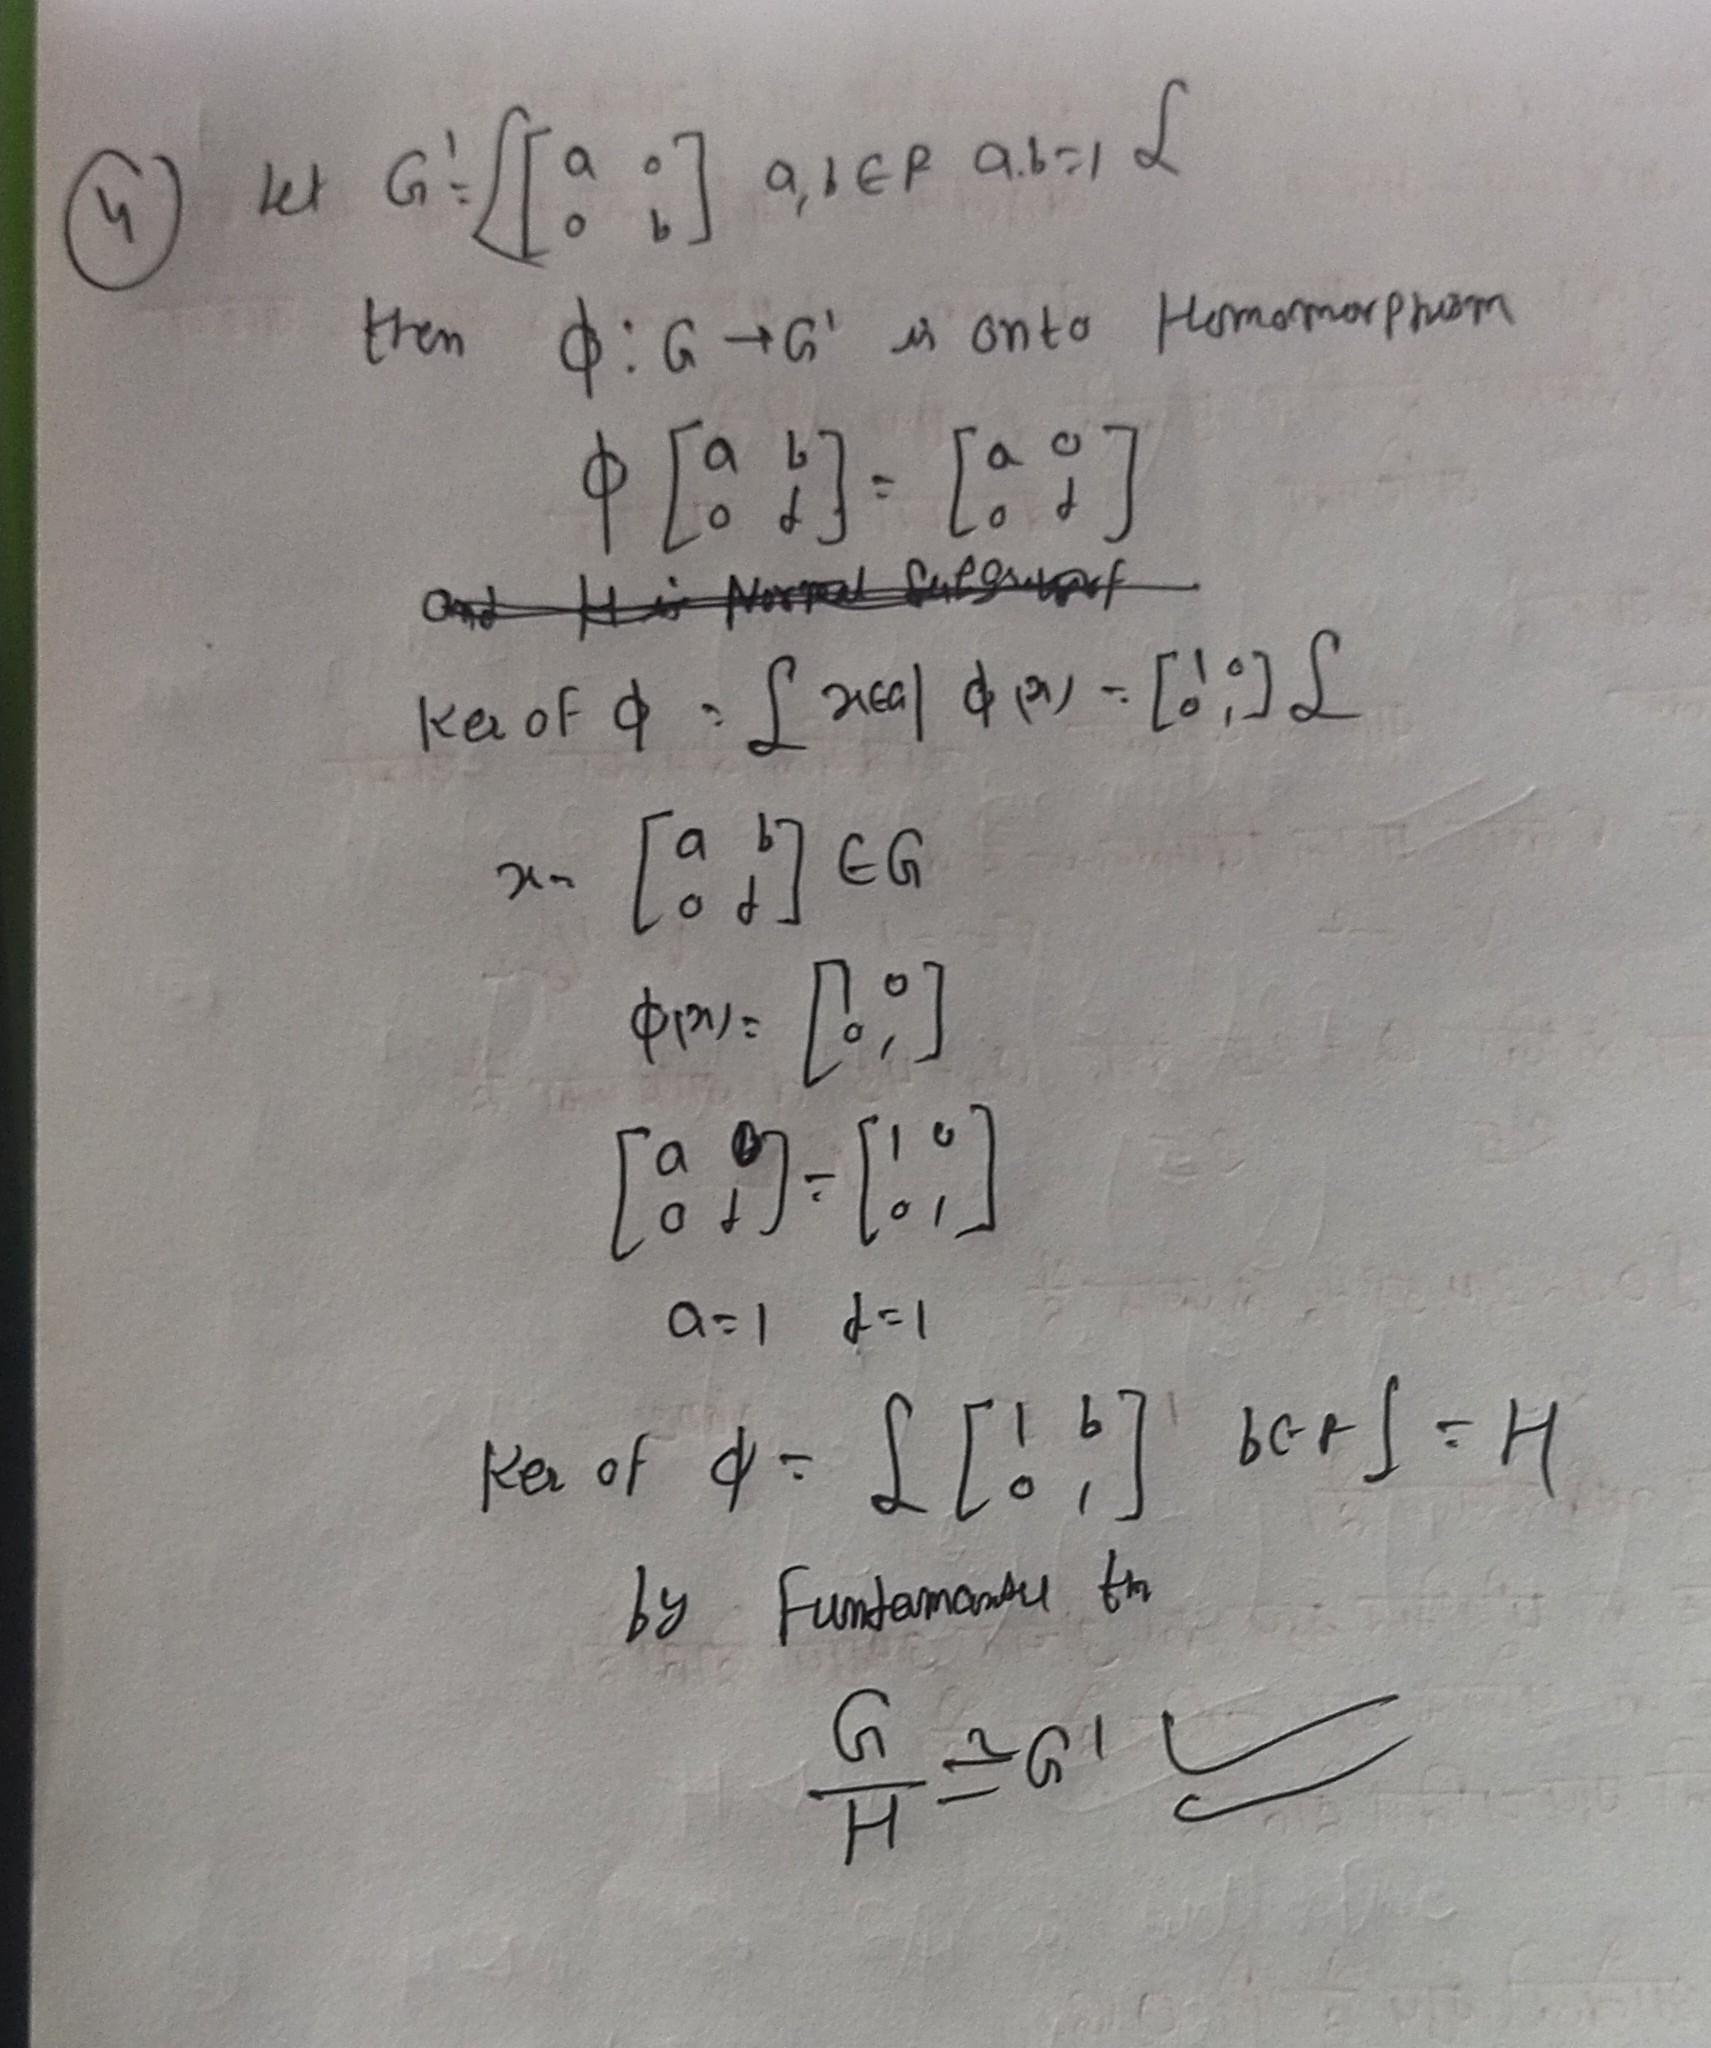 4 Let G' = { [a 0; 0 b] a,b ∈ R a.b=1 }
then ϕ : G → G' is onto Homomorphism
ϕ [a b; 0 d] = [a 0; 0 d]
and H is Normal
Ker of ϕ = { x∈G | ϕ(x) = [1 0; 0 1] }
x = [a b; 0 d] ∈ G
ϕ(x) = [1 0; 0 1]
[a 0; 0 d] = [1 0; 0 1]
a=1 d=1
Ker of ϕ = { [1 b; 0 1] b∈R } = H
by th
G/H ≅ G'